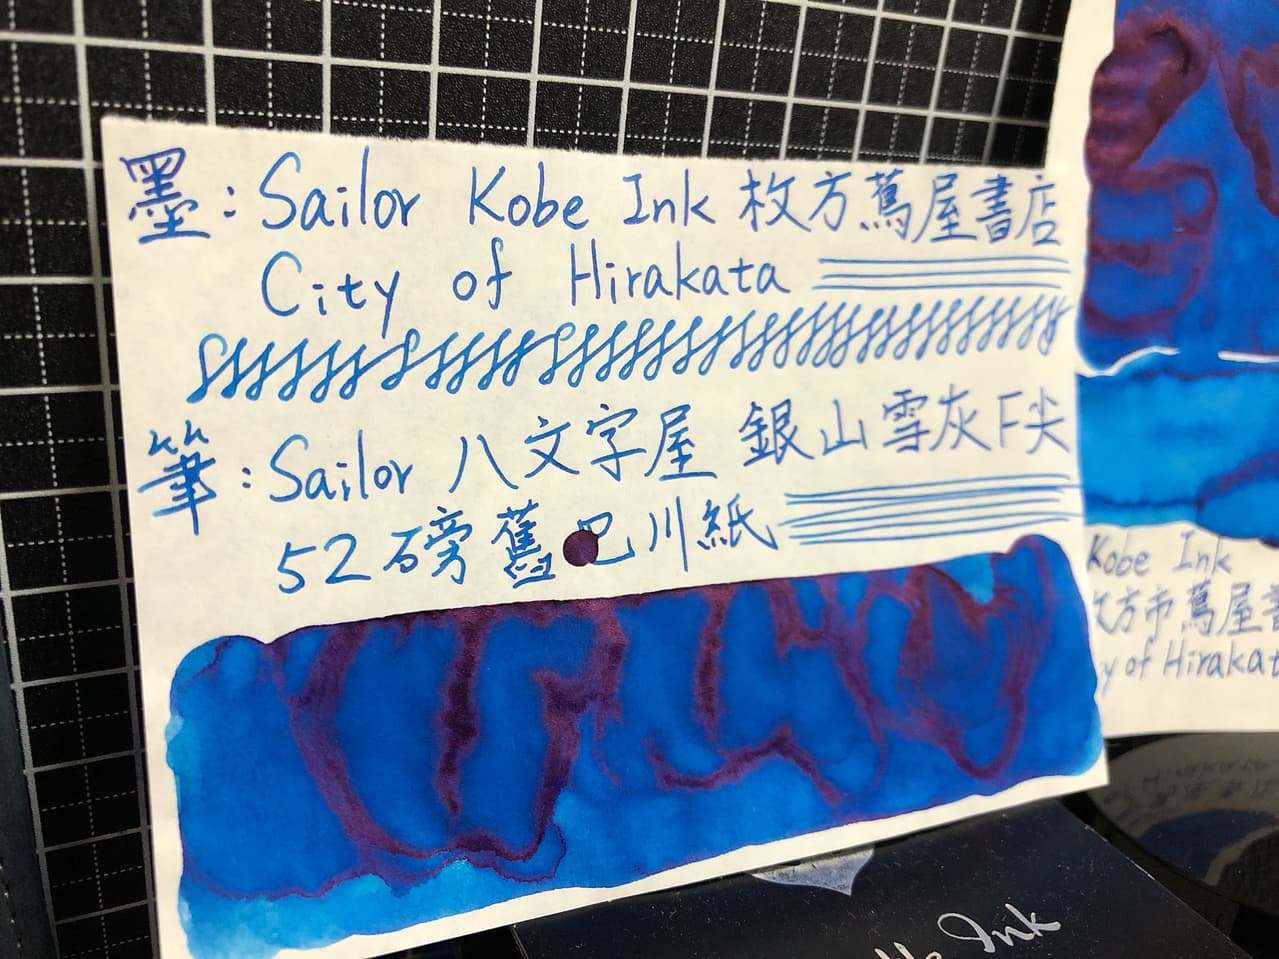 墨：Sailor Kobe Ink 枚方蔦屋書店
City of Hirakata
筆：Sailor 八文字屋 銀山雪灰F尖
52磅 舊巴川紙
Kobe Ink
枚方市蔦屋書
y of Hirakat
Ink